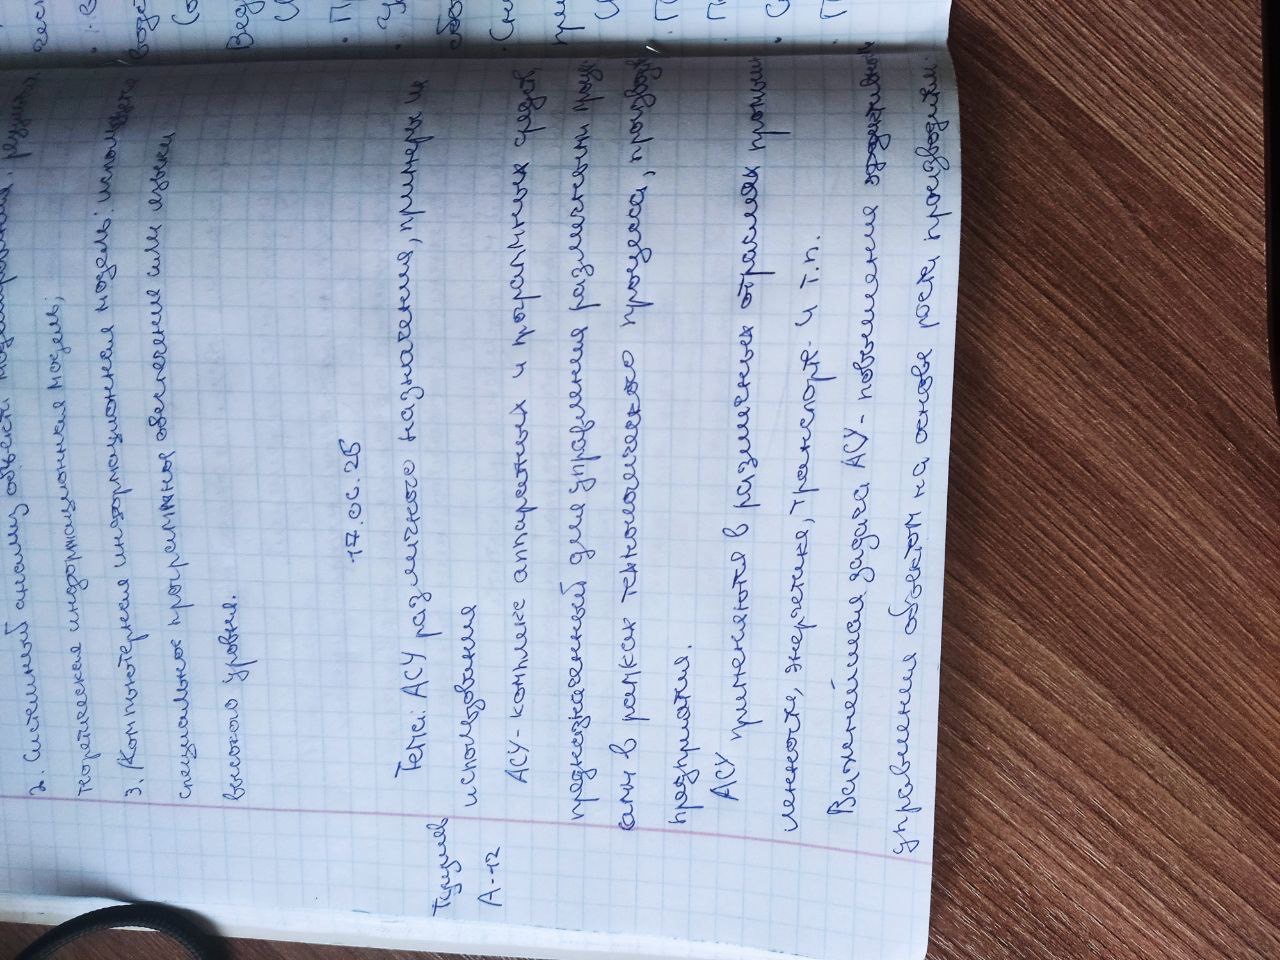 2. Системный анализ объекта моделирования, результ.
теоретическая информационная модель;
3. Компьютерная информационная модель: используется
специальное программное обеспечение или языки
высокого уровня.
17.06.25
Тема: АСУ различного назначения, примеры их
использования
А-12
АСУ - комплекс аппаратных и програмных средств,
предназначенный для управления различными проце
сами в рамках технологического процесса, производ
предприятия.
АСУ применяются в различных отраслях промыш
ленности, энергетике, транспорте и т.п.
Важнейшая задача АСУ - повышение эффективнос
управления объектом на основе роста производител.